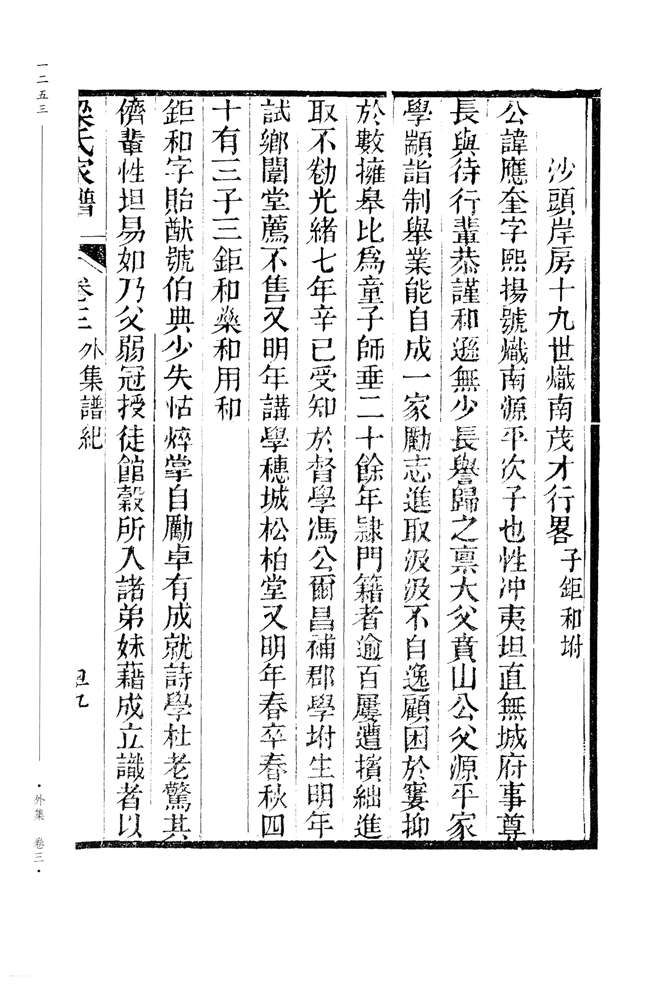 沙頭岸房十九世熾南茂才行畧子鉅和坿
公諱應奎字熙揚號熾南源平次子也性冲夷坦直無城府事尊
長與待行輩恭謹和遜無少長譽歸之稟大父賁山公父源平家
學顓詣制舉業能自成一家勵志進取汲汲不自逸顧困於寠抑
於數擁臯比爲童子師垂二十餘年隷門籍者逾百屢遭擯絀進
取不勌光緒七年辛巳受知於督學馮公爾昌補郡學坿生明年
試鄉闈堂薦不售又明年講學穗城松柏堂又明年春卒春秋四
十有三子三鉅和燊和用和
鉅和字貽猷號伯典少失怙焠掌自勵卓有成就詩學杜老驚其
儕輩性坦易如乃父弱冠授徒館穀所入諸弟妹藉成立識者以
梁氏家譜
卷三外集譜紀
一二五三
·外集 卷三·